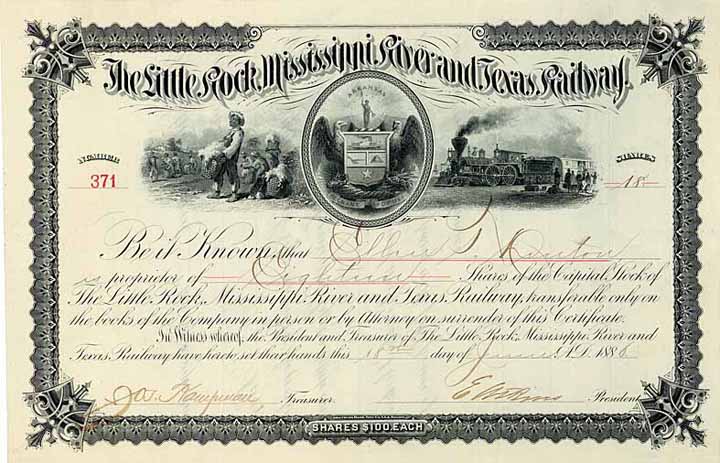 The Little Rock, Mississippi River and Texas Railway.
ARKANSAS
NUMBER
371
SHARES
18
Be it Known, that
is proprietor of Eighteen Shares of the Capital Stock of
The Little Rock, Mississippi River and Texas Railway, transferable only on
the books of the Company in person or by Attorney on surrender of this Certificate.
In Witness whereof, the President and Treasurer of The Little Rock, Mississippi River and
Texas Railway have hereto set their hands this 18th day of June A.D. 188
Treasurer.
President
SHARES $100 EACH